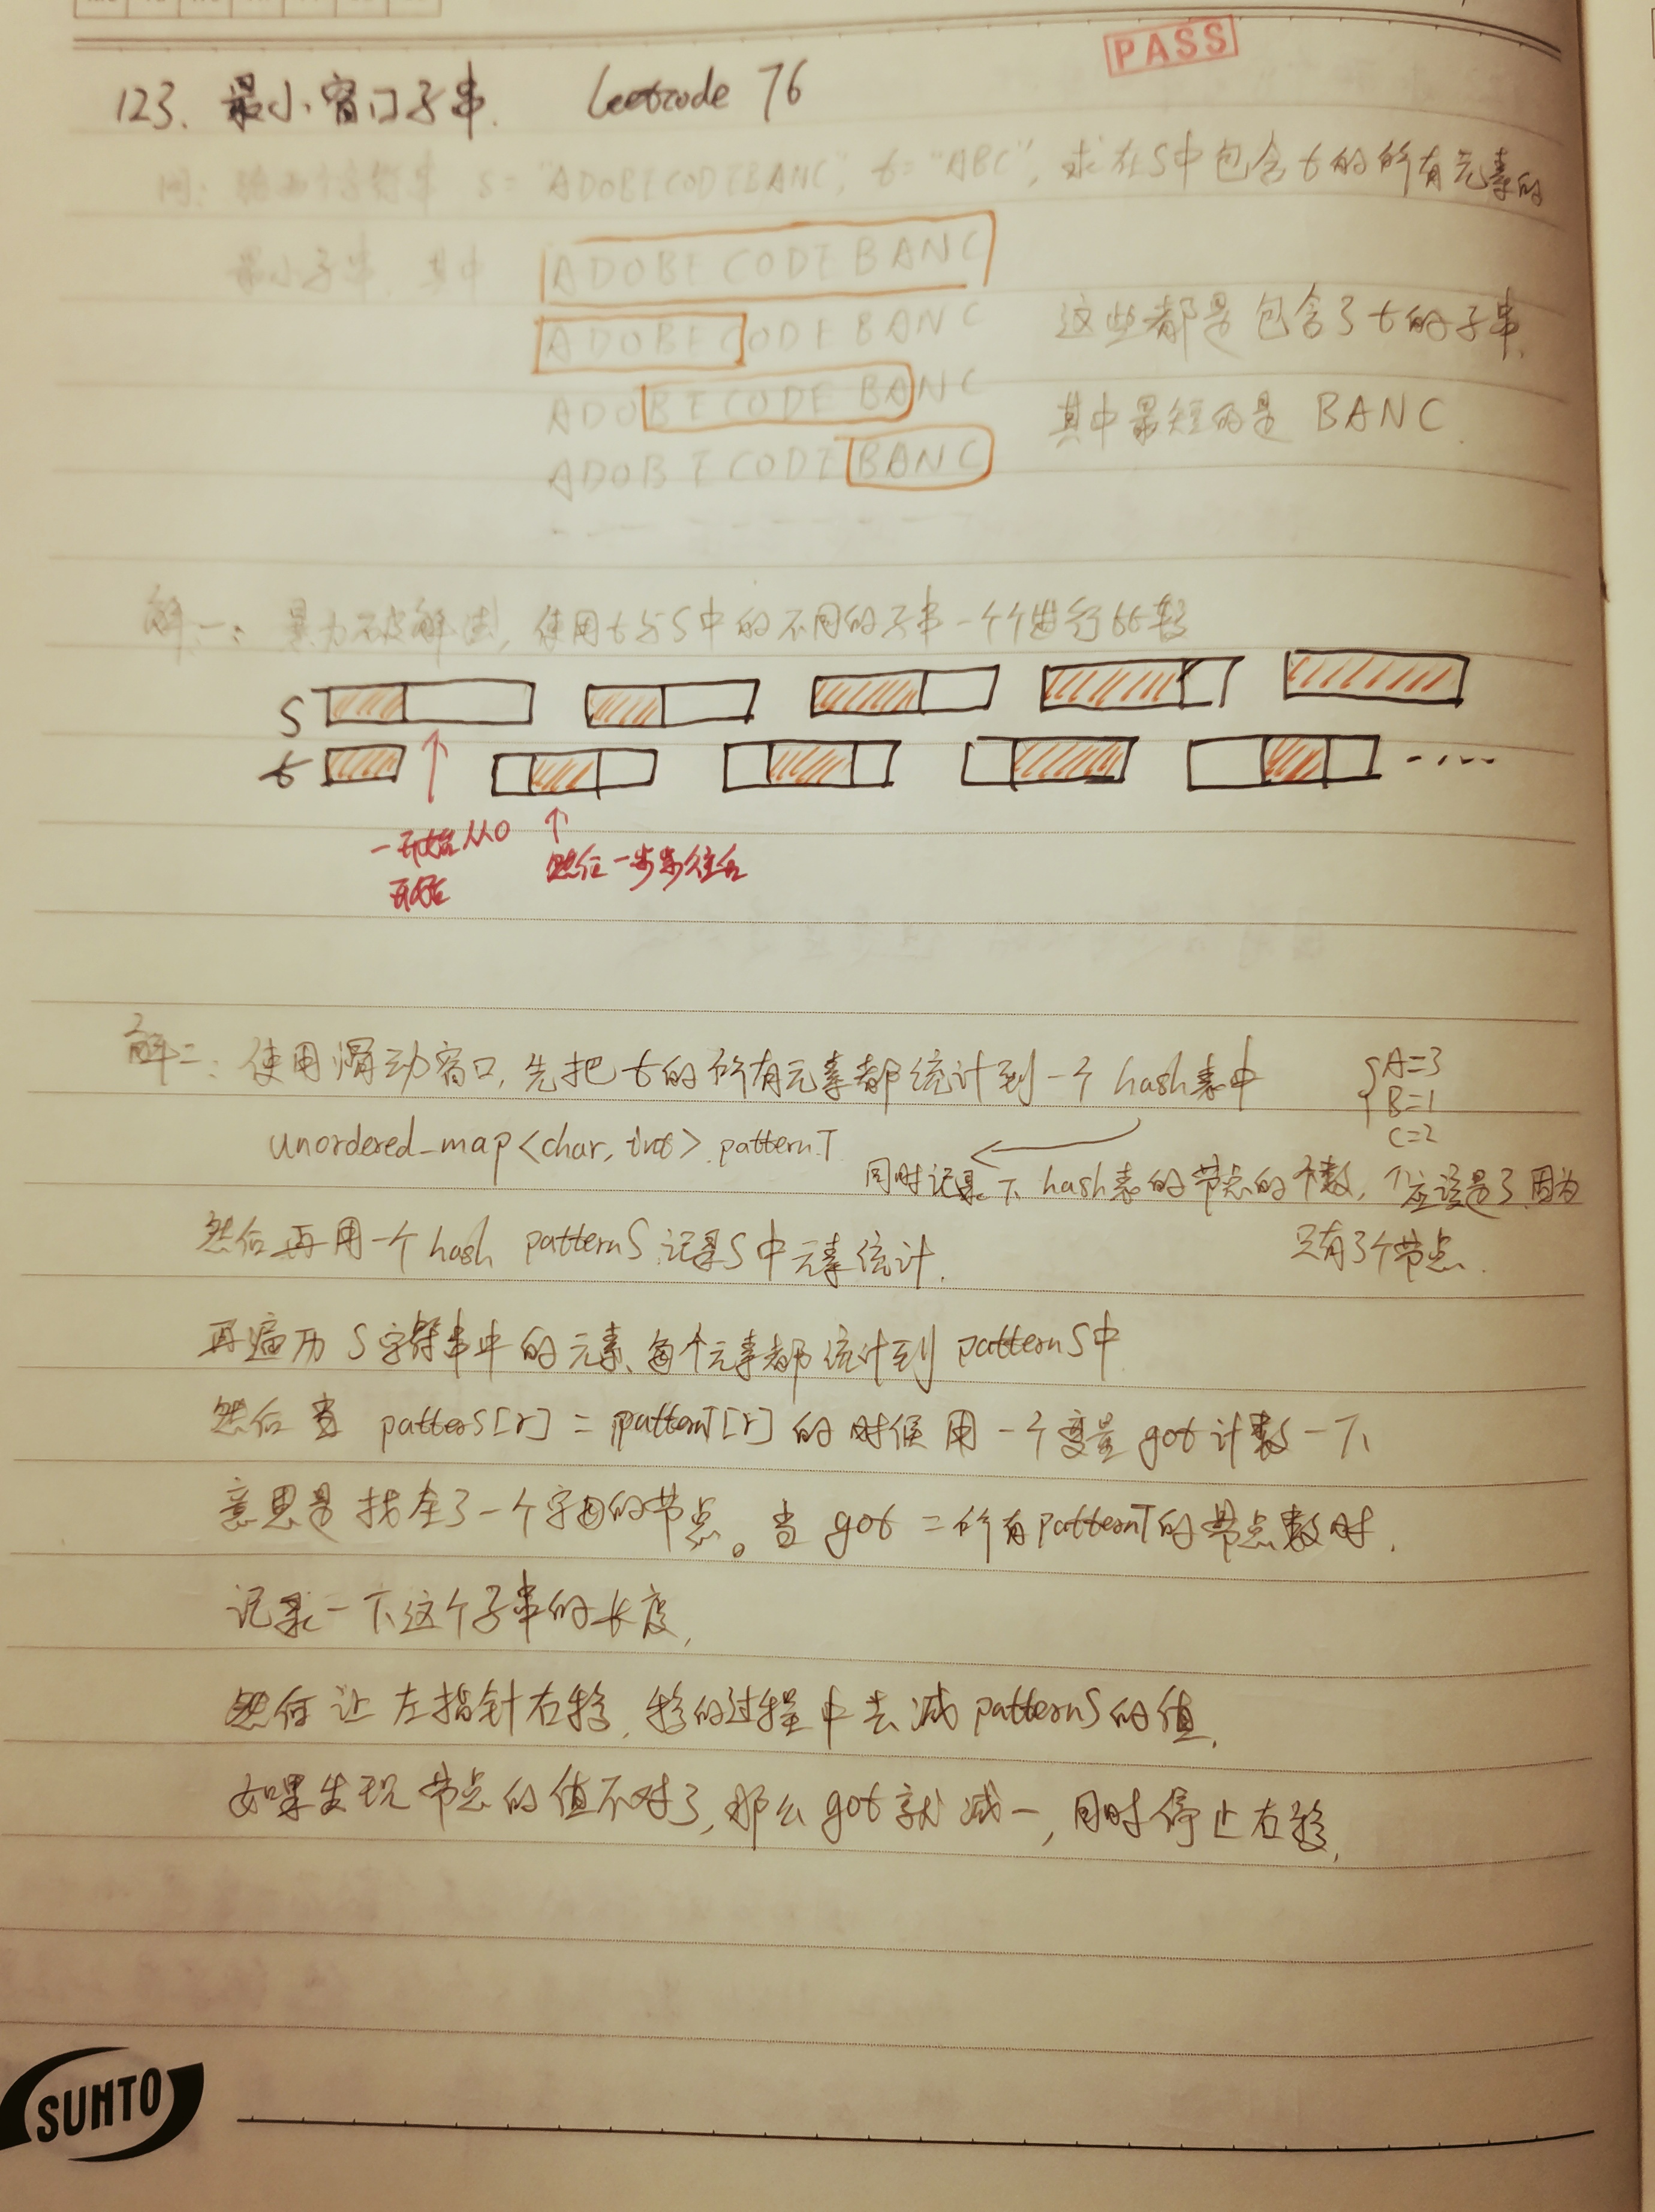 PASS
123. 最小窗口子串. Leetcode 76
问: 给两个字符串 S="ADOBECODEBANC", t="ABC", 求在S中包含t的所有元素的
最小子串. 其中 ADOBECODEBANC
ADOBECODEBANC 这些都是包含了t的子串.
ADOBECODEBANC 其中最短的是 BANC.
ADOBECODEBANC
解一: 暴力破解法, 使用t与S中的不同的子串一个个进行比较
S
t
一开始从0
开始
然后一步步往右
解二: 使用滑动窗口, 先把t的所有元素都统计到一个hash表中 A=3
B=1
C=2
unordered_map<char, int> patternT
同时记录下hash表的节点的个数, 应该是3因为
只有3个节点.
然后再用一个hash patternS 记录S中元素统计.
再遍历S字符串中的元素, 每个元素都统计到patternS中
然后当 patterS[r] = patternT[r] 的时候用一个变量got计数一下
意思是找全了一个字母的节点。当got=所有patternT的节点数时.
记录一下这个子串的长度,
然后让左指针右移, 移的过程中去减patternS的值.
如果发现节点的值不对了, 那么got就减一, 同时停止右移.
SUNTO